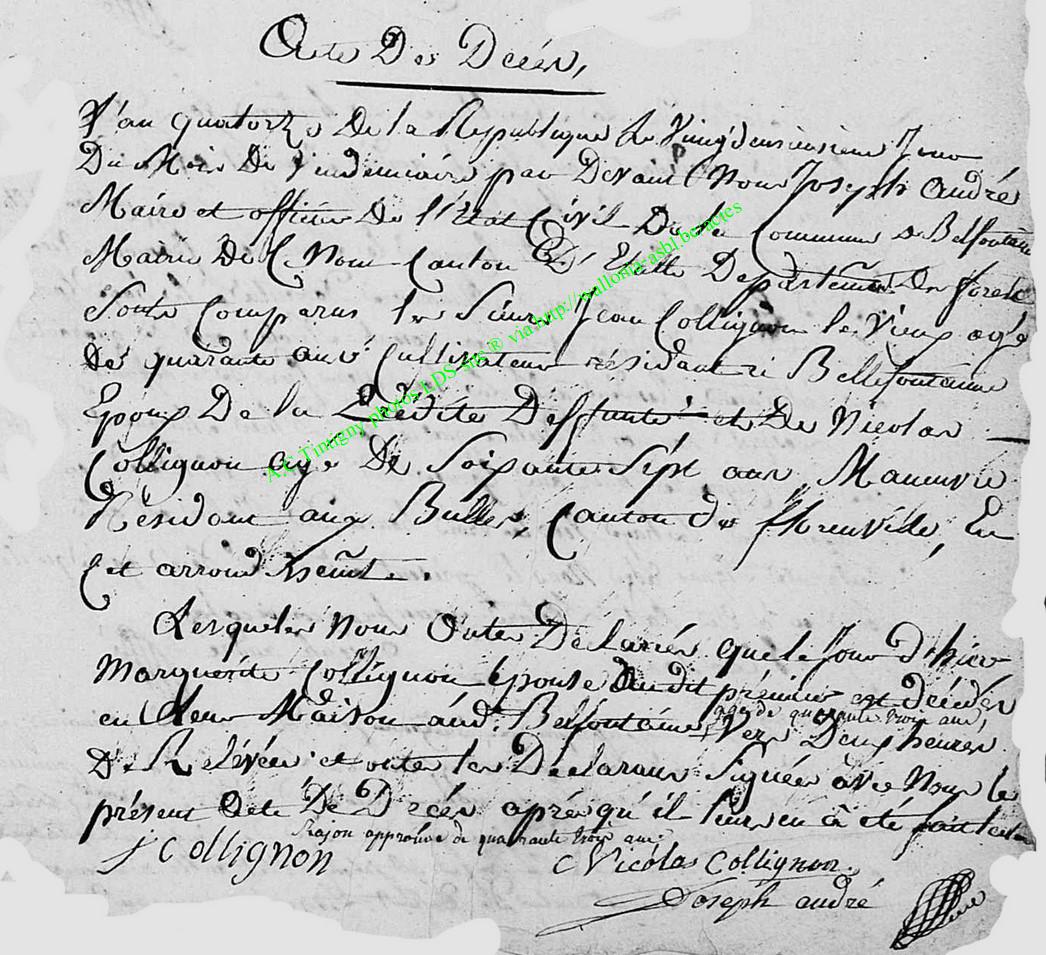 Acte De Décés,
L'an quatorze De la Republique Le Vingdeuxieme Jour
Du Mois De Vindemiaire par Devant Nous Joseph André
Maire et officier De l'état Civil De la Commune De Belfontaine
Mairie De C. Nom Canton D'Etalle Departement Des forets
Sonts Comparus le Sieur Jean Collignon le Vieux agé
De quarante ans Cultivateur résidant à Bellefontaine
Epoux De la Ladite Deffunte et De Nicolas
Collignon agé De Soixante Sept ans, Maneuvre
Résidant aux Bulles, Canton de florenville, En
Cet arrondissemt.
Lesquels Nous Ontes Déclarés que le Jour d'hier
Marguerite Collignon Epouse Dudit prémier est Décédés
en Leur Maison aud. Belfontaine, Vers Deux heures
agé de quarante trois ans,
De Relévée et ontes les Declarans Signés avec Nous le
présent Acte De Décés aprés qu'il leur en à été fait lecture
Rajon approuvé de quarante trois ans.
J Collignon
Nicolas Collignon.
Joseph andré
A.C. Tintigny photos LDS-sits ® via http://wallonia-asbl.be:actes